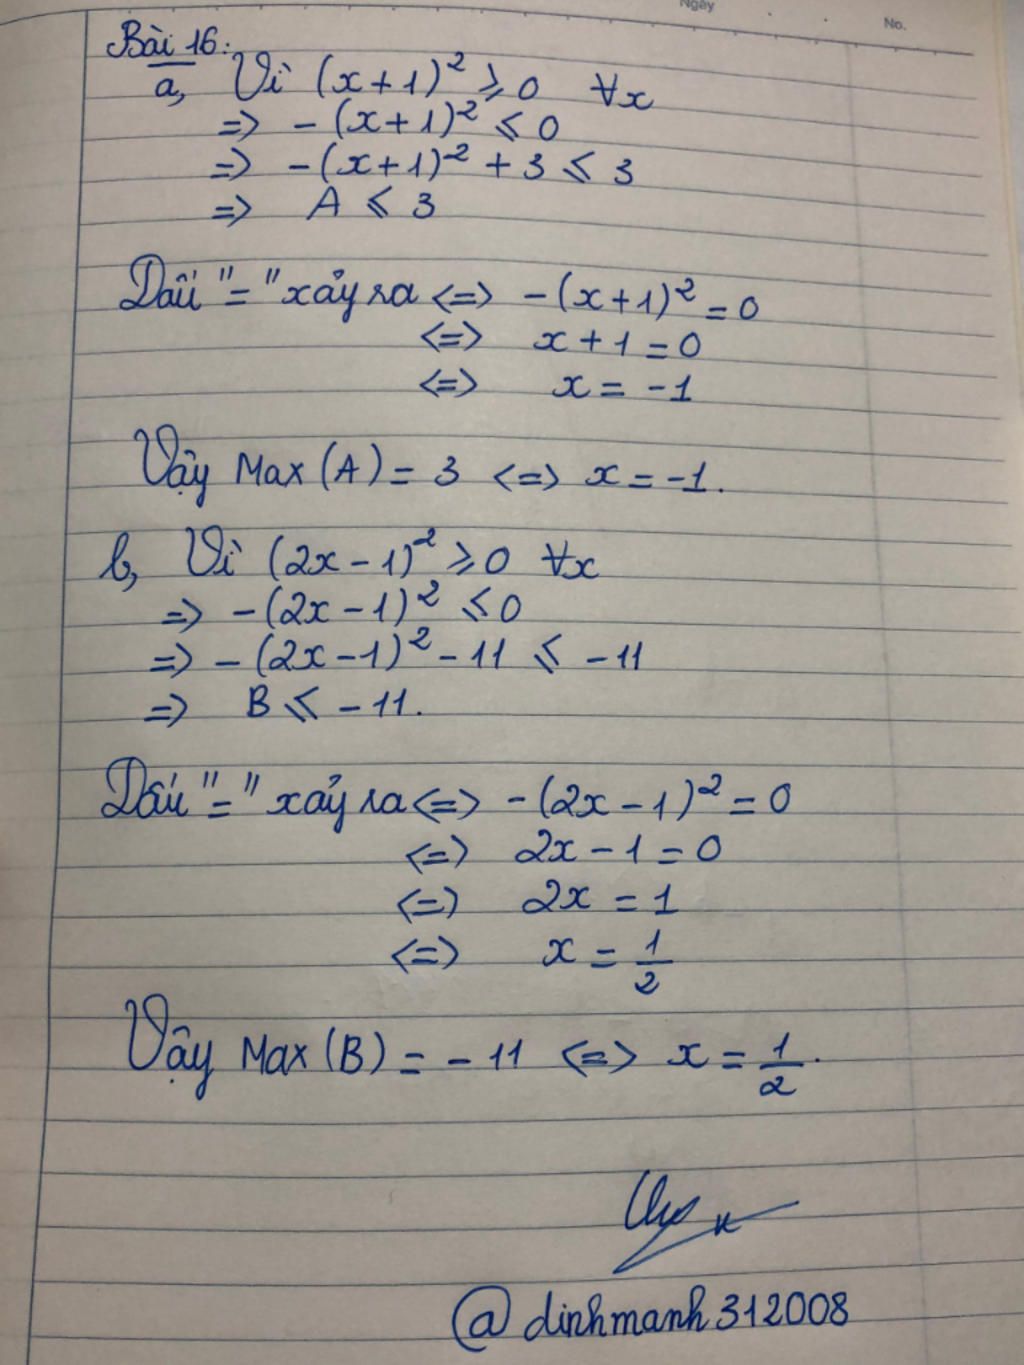 Ngày
No.
Bài 16:
a, Vì (x+1)² ⩾ 0 ∀x
=> -(x+1)² ⩽ 0
=> -(x+1)² + 3 ⩽ 3
=> A ⩽ 3
Dấu "=" xảy ra <=> -(x+1)² = 0
<=> x+1=0
<=> x = -1
Vậy Max(A) = 3 <=> x = -1.
b, Vì (2x-1)² ⩾ 0 ∀x
=> -(2x-1)² ⩽ 0
=> -(2x-1)² - 11 ⩽ -11
=> B ⩽ -11.
Dấu "=" xảy ra <=> -(2x-1)² = 0
<=> 2x-1=0
<=> 2x = 1
<=> x = 1/2
Vậy Max(B) = -11 <=> x = 1/2.
@dinhmanh312008